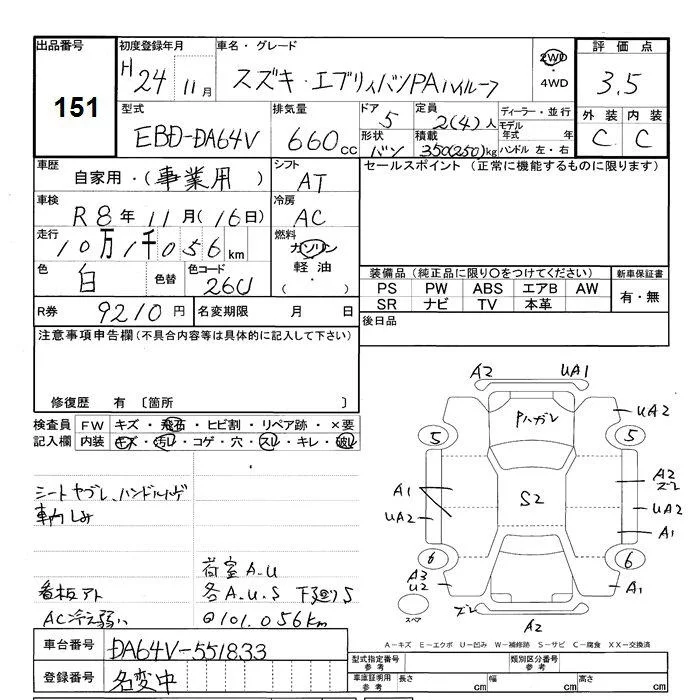 出品番号 初度登録年月 車名・グレード 2WD ・ 4WD 評価点
151 H24 11月 スズキ・エブリィバンPAハイルーフ 3.5
型式 排気量 ドア 定員 ディーラー・並行 外装 内装
EBD-DA64V 660cc 5 2(4)人 モデル年式 年 C C
形状 積載 ハンドル 左・右
バン 350(250)kg
車歴 シフト セールスポイント (正常に機能するものに限ります)
自家用・(事業用) AT
車検 冷房
R8年11月(16日) AC
走行 燃料
10万1千056km ガソリン
軽油
・( )
色 色替 色コード
白 26U
装備品 (純正品に限り○をつけてください) 新車保証書
PS PW ABS エアB AW 有・無
SR ナビ TV 本革
R券 9210円 名変期限 月 日 後日品
注意事項申告欄(不具合内容等は具体的に記入して下さい)
修復歴 有 〔箇所 〕
検査員記入欄 FW キズ・飛石・ヒビ割・リペア跡・×要
内装 キズ・汚レ・コゲ・穴・スレ・キレ・破レ
シートヤブレ、ハンドルハゲ
車内しみ
荷室A.U
看板アト 各A.U.S 下廻りS
AC冷え弱い ◎101.056km
車台番号 DA64V-551833
登録番号 名変中
A2 UA1
Pハガレ UA2
5 5
A1 S2 A2
ズレ
UA2 UA2
A1
6 6
A3
U2 A1
スペア ズレ
A2
A-キズ E-エクボ U-凹み W-補修跡 S-サビ C-腐食 XX-交換済
型式指定番号 参考 類別区分番号 参考
車庫証明用 参考 長さ cm 幅 cm 高さ cm